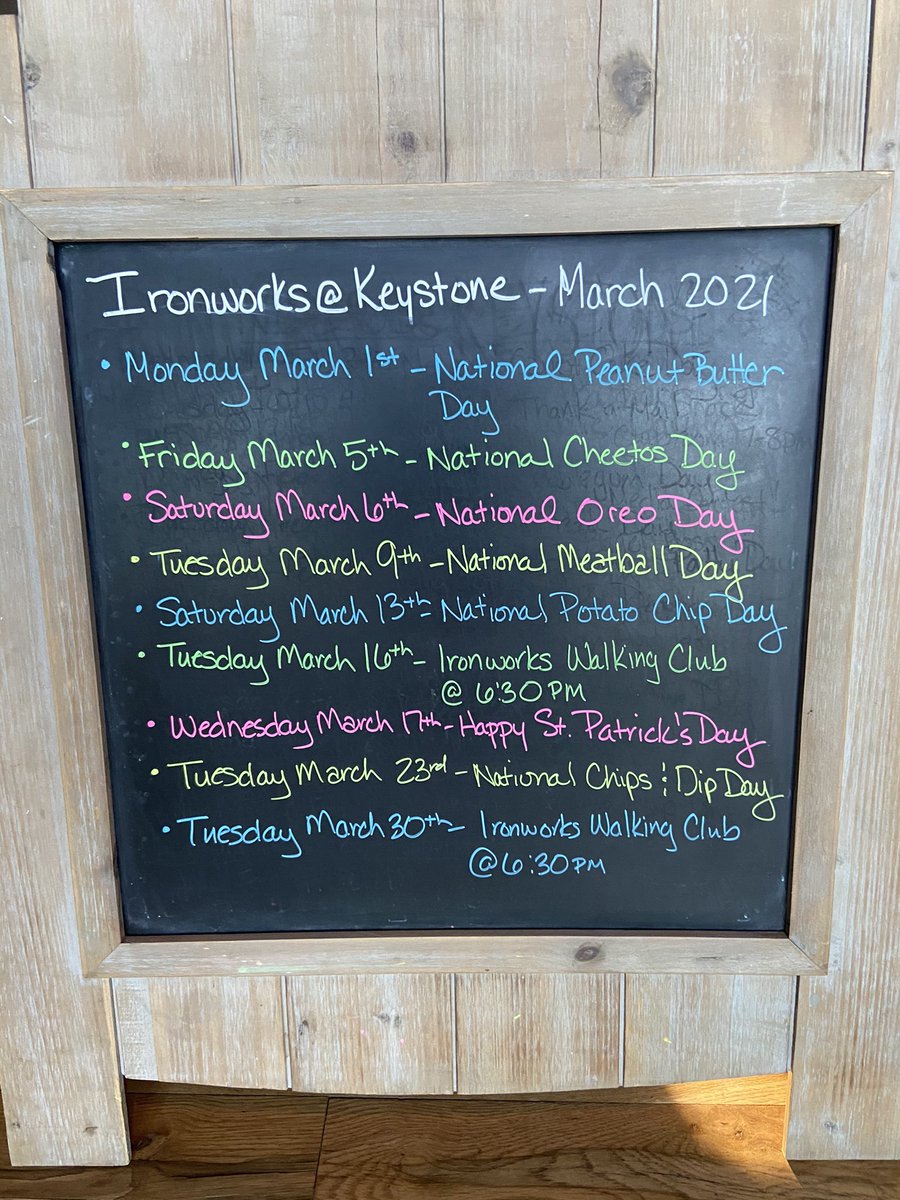 Ironworks@Keystone - March 2021
• Monday March 1st - National Peanut Butter
Day
• Friday March 5th - National Cheetos Day
• Saturday March 6th - National Oreo Day
• Tuesday March 9th - National Meatball Day
• Saturday March 13th - National Potato Chip Day
• Tuesday March 16th - Ironworks Walking Club
@ 6:30 PM
• Wednesday March 17th - Happy St. Patrick's Day
• Tuesday March 23rd - National Chips & Dip Day
• Tuesday March 30th - Ironworks Walking Club
@ 6:30 PM